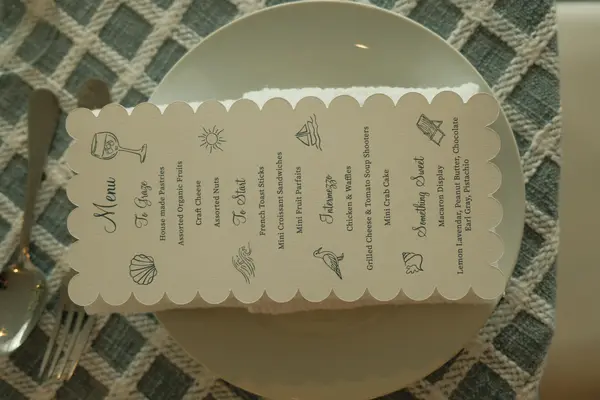 Menu
To Graze
House made Pastries
Assorted Organic Fruits
Craft Cheese
Assorted Nuts
To Start
French Toast Sticks
Mini Croissant Sandwiches
Mini Fruit Parfaits
Intermezzo
Chicken & Waffles
Grilled Cheese & Tomato Soup Shooters
Mini Crab Cake
Something Sweet
Macaron Display
Lemon Lavendar, Peanut Butter, Chocolate
Earl Gray, Pistachio